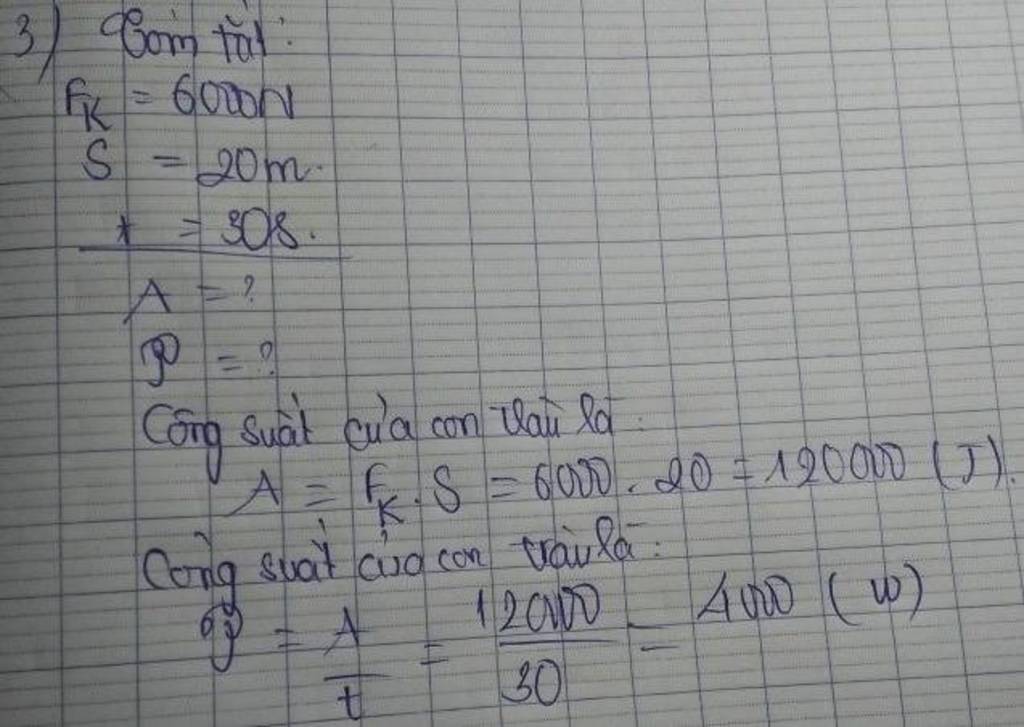 3) Tóm tắt:
FK = 6000N
S = 20m.
t = 30s.
A = ?
P = ?
Công suất của con trâu là:
A = FK.S = 6000.20 = 120000 (J).
Công suất của con trâu là:
P = A/t = 120000/30 = 4000 (W)